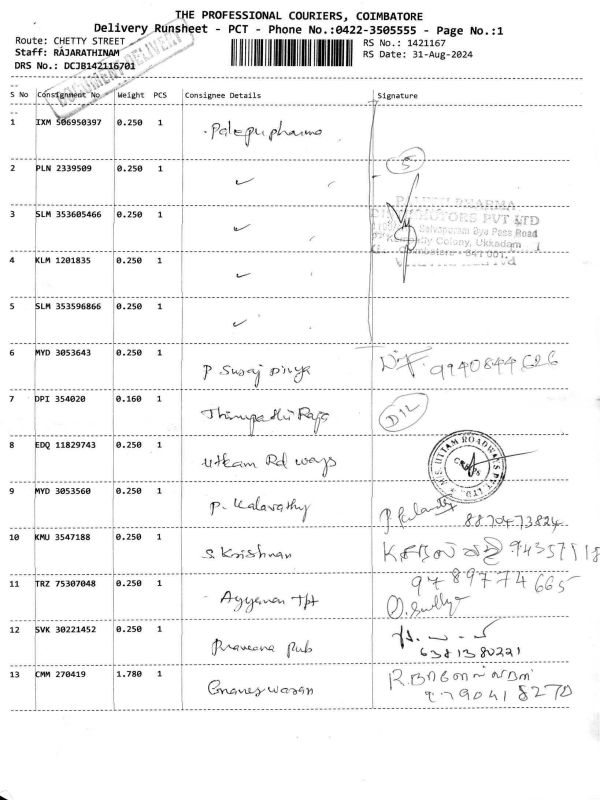 THE PROFESSIONAL COURIERS, COIMBATORE
Delivery Runsheet - PCT - Phone No.:0422-3505555 - Page No.:1
Route: CHETTY STREET
RS No.: 1421167
Staff: RAJARATHINAM
RS Date: 31-Aug-2024
DRS No.: DCJB142116701
DOCUMENT DELIVERY
S No Consignment No Weight PCS Consignee Details Signature
1 IXM 506950397 0.250 1 Palepu pharma
2 PLN 2339509 0.250 1 ✓ 5
3 SLM 353605466 0.250 1 ✓
PHARMA
DISTRIBUTORS PVT LTD
Selvapuram Bye Pass Road
Colony, Ukkadam
Coimbatore - 641 001.
4 KLM 1201835 0.250 1 ✓
5 SLM 353596866 0.250 1 ✓
6 MYD 3053643 0.250 1 P Suraj Divya 9940844626
7 DPI 354020 0.160 1 Thirupathi Raja D12
8 EDQ 11829743 0.250 1 Uttam Rd ways
M/S. UTTAM ROADWAYS PVT. LTD.
9 MYD 3053560 0.250 1 P. Kalavathy 8870473824
10 KMU 3547188 0.250 1 S. Krishnan
11 TRZ 75307048 0.250 1 Ayyanar Tpt 9789774665
12 SVK 30221452 0.250 1 Praveena Pub 6381380221
13 CMM 270419 1.780 1 Gnaneswaran